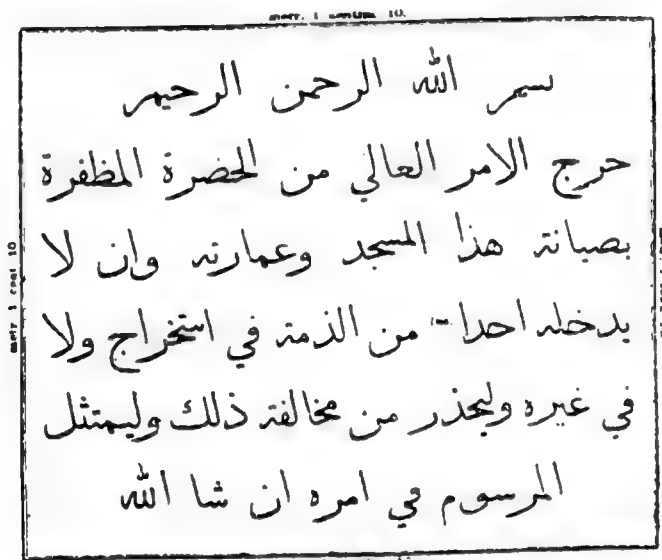 metr. 1 centim 10.
بسم الله الرحمن الرحيم
حرج الامر العالي من الحضرة المظفرة
بصيانة هذا المسجد وعمارته وان لا
يدخله احدا من الذمة في استخراج ولا
في غيره وليحذر من مخالفة ذلك وليمتثل
المرسوم في امره ان شا الله
metr 1 cent 10